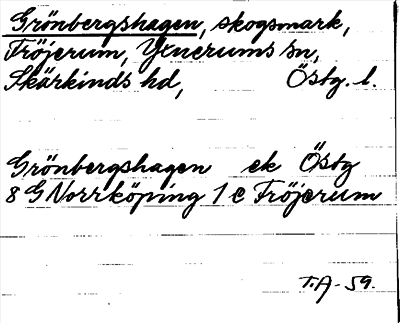 Grönbergshagen, skogsmark,
Fröjerum, Yllerums sn,
Skärkinds hd, Östg. l.
Grönbergshagen ek Östg
8 G Norrköping 1 e Fröjerum
T.A - 59.